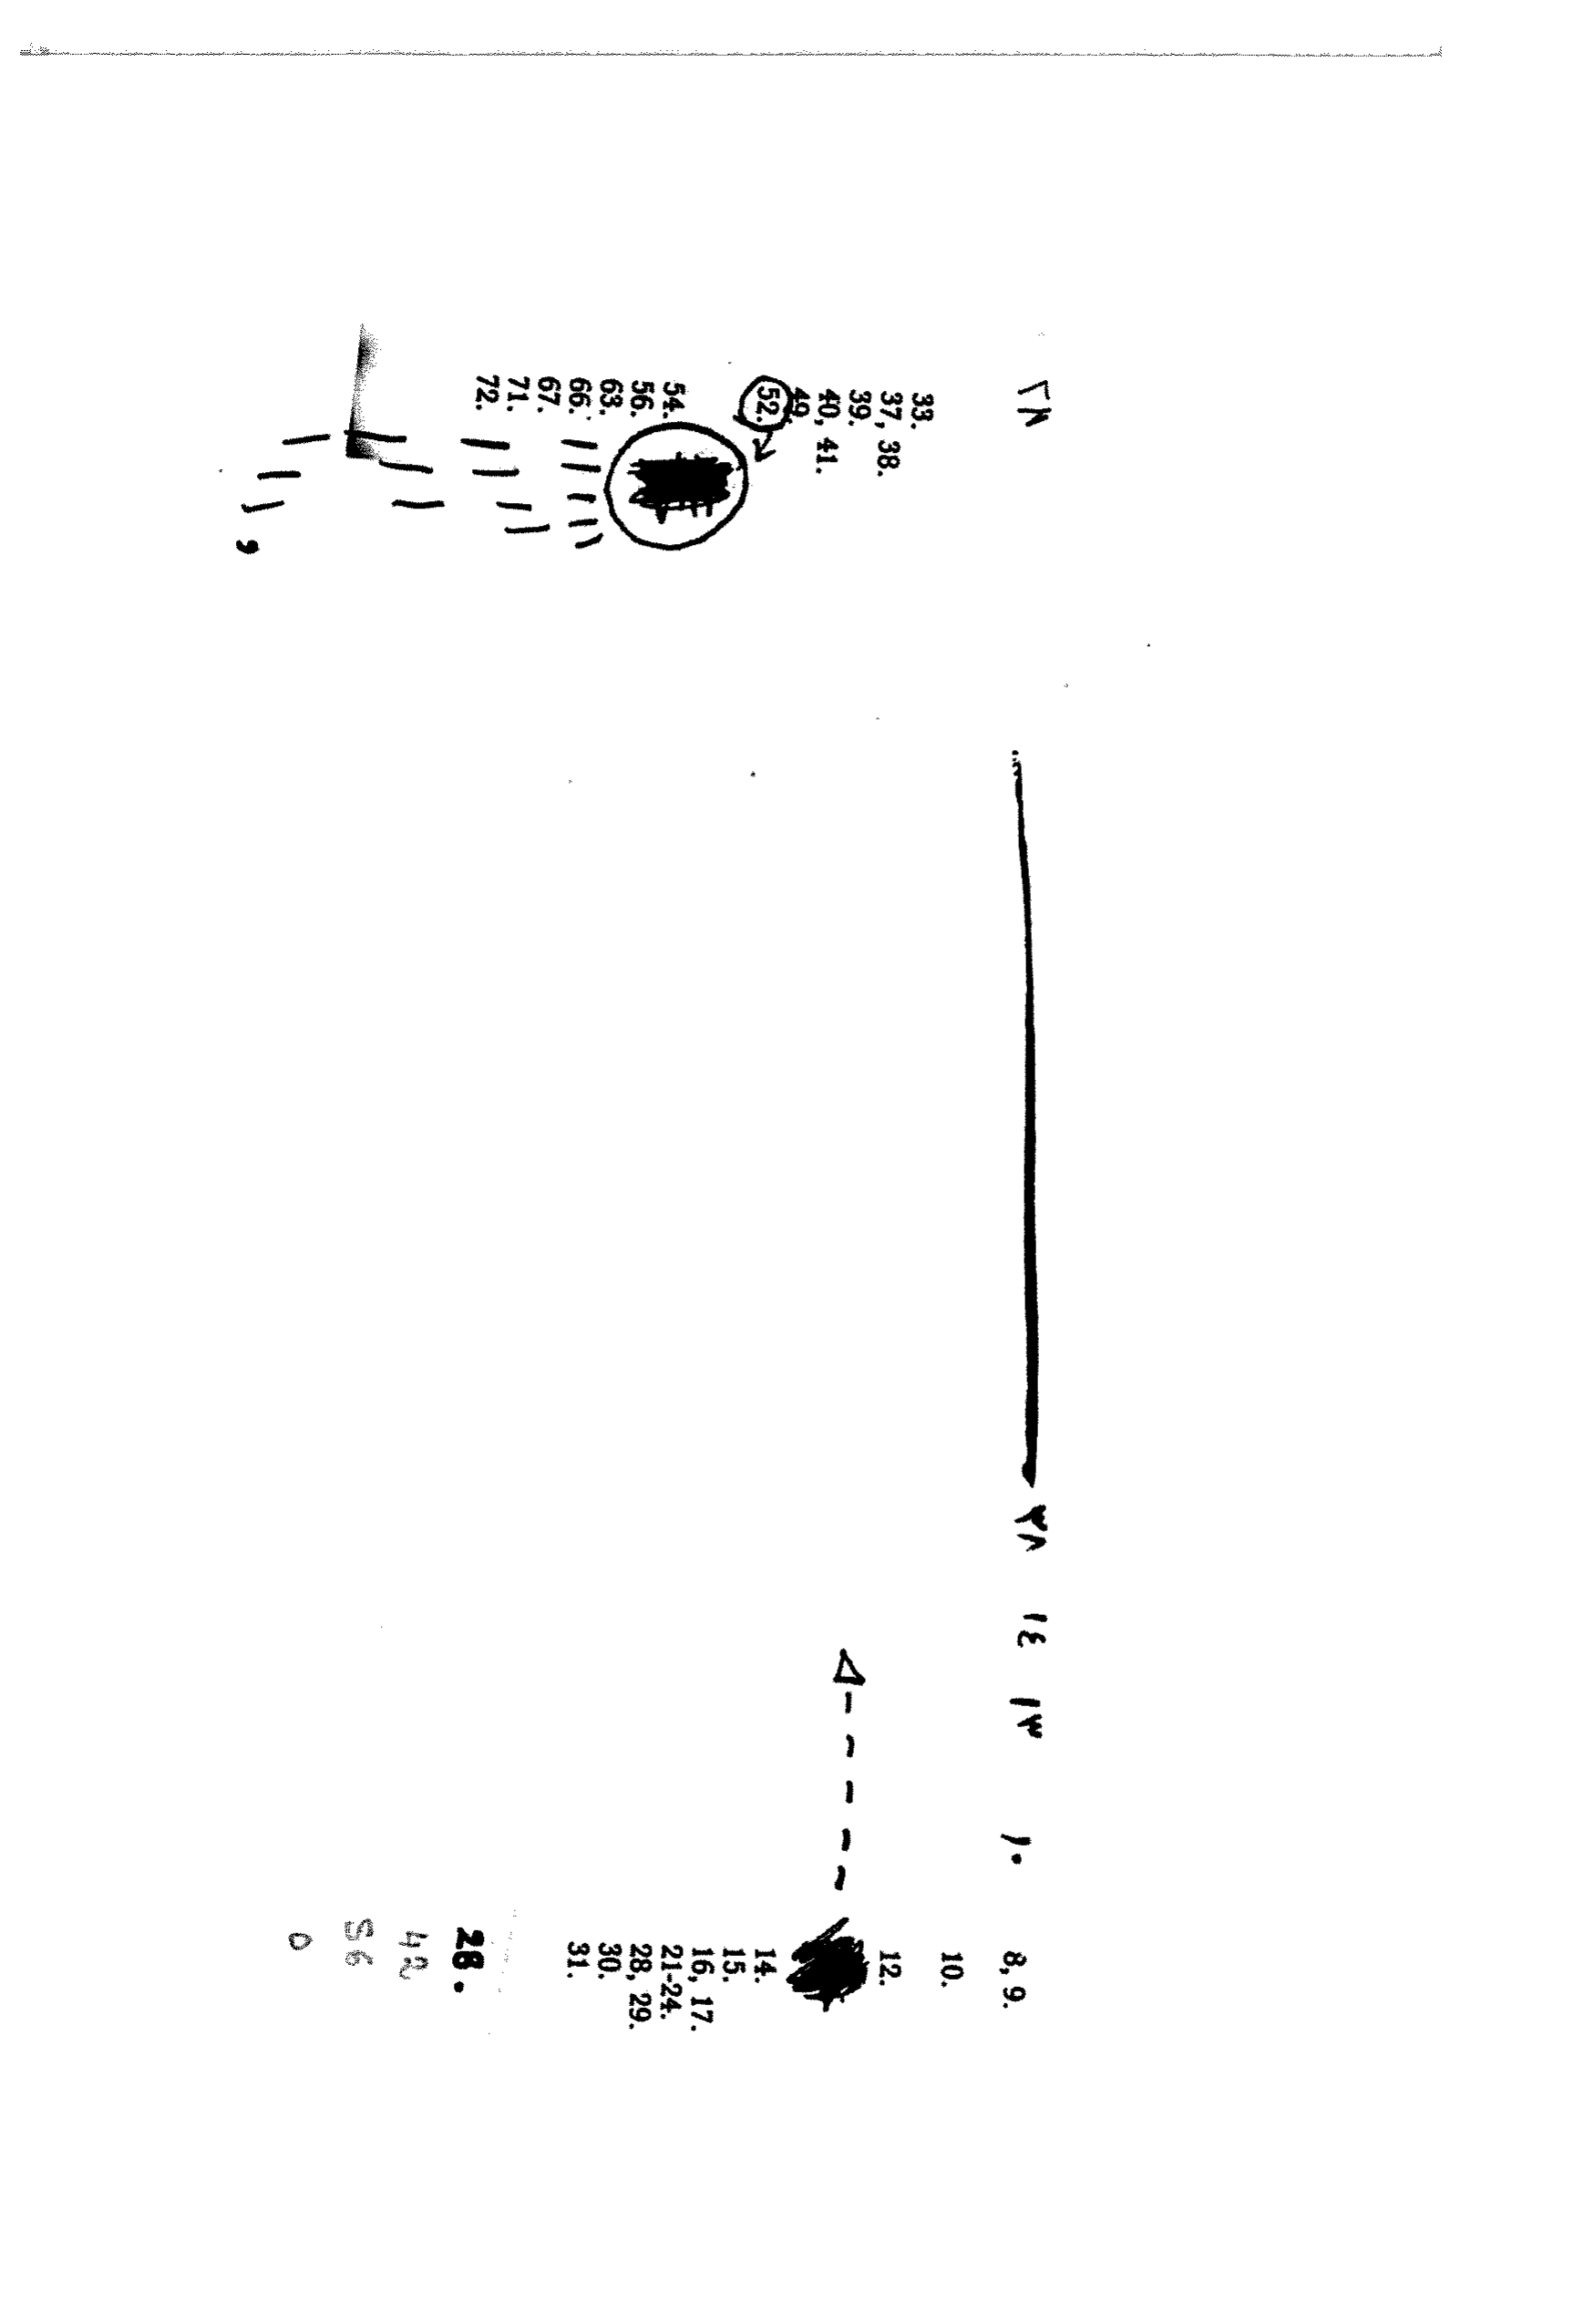 33.
37, 38.
39.
40, 41.
49.
52.
54.
56.
63.
66.
67.
71.
72.
8, 9.
10.
12.
14.
15.
16, 17.
21-24.
28, 29.
30.
31.
28.
42
56
0